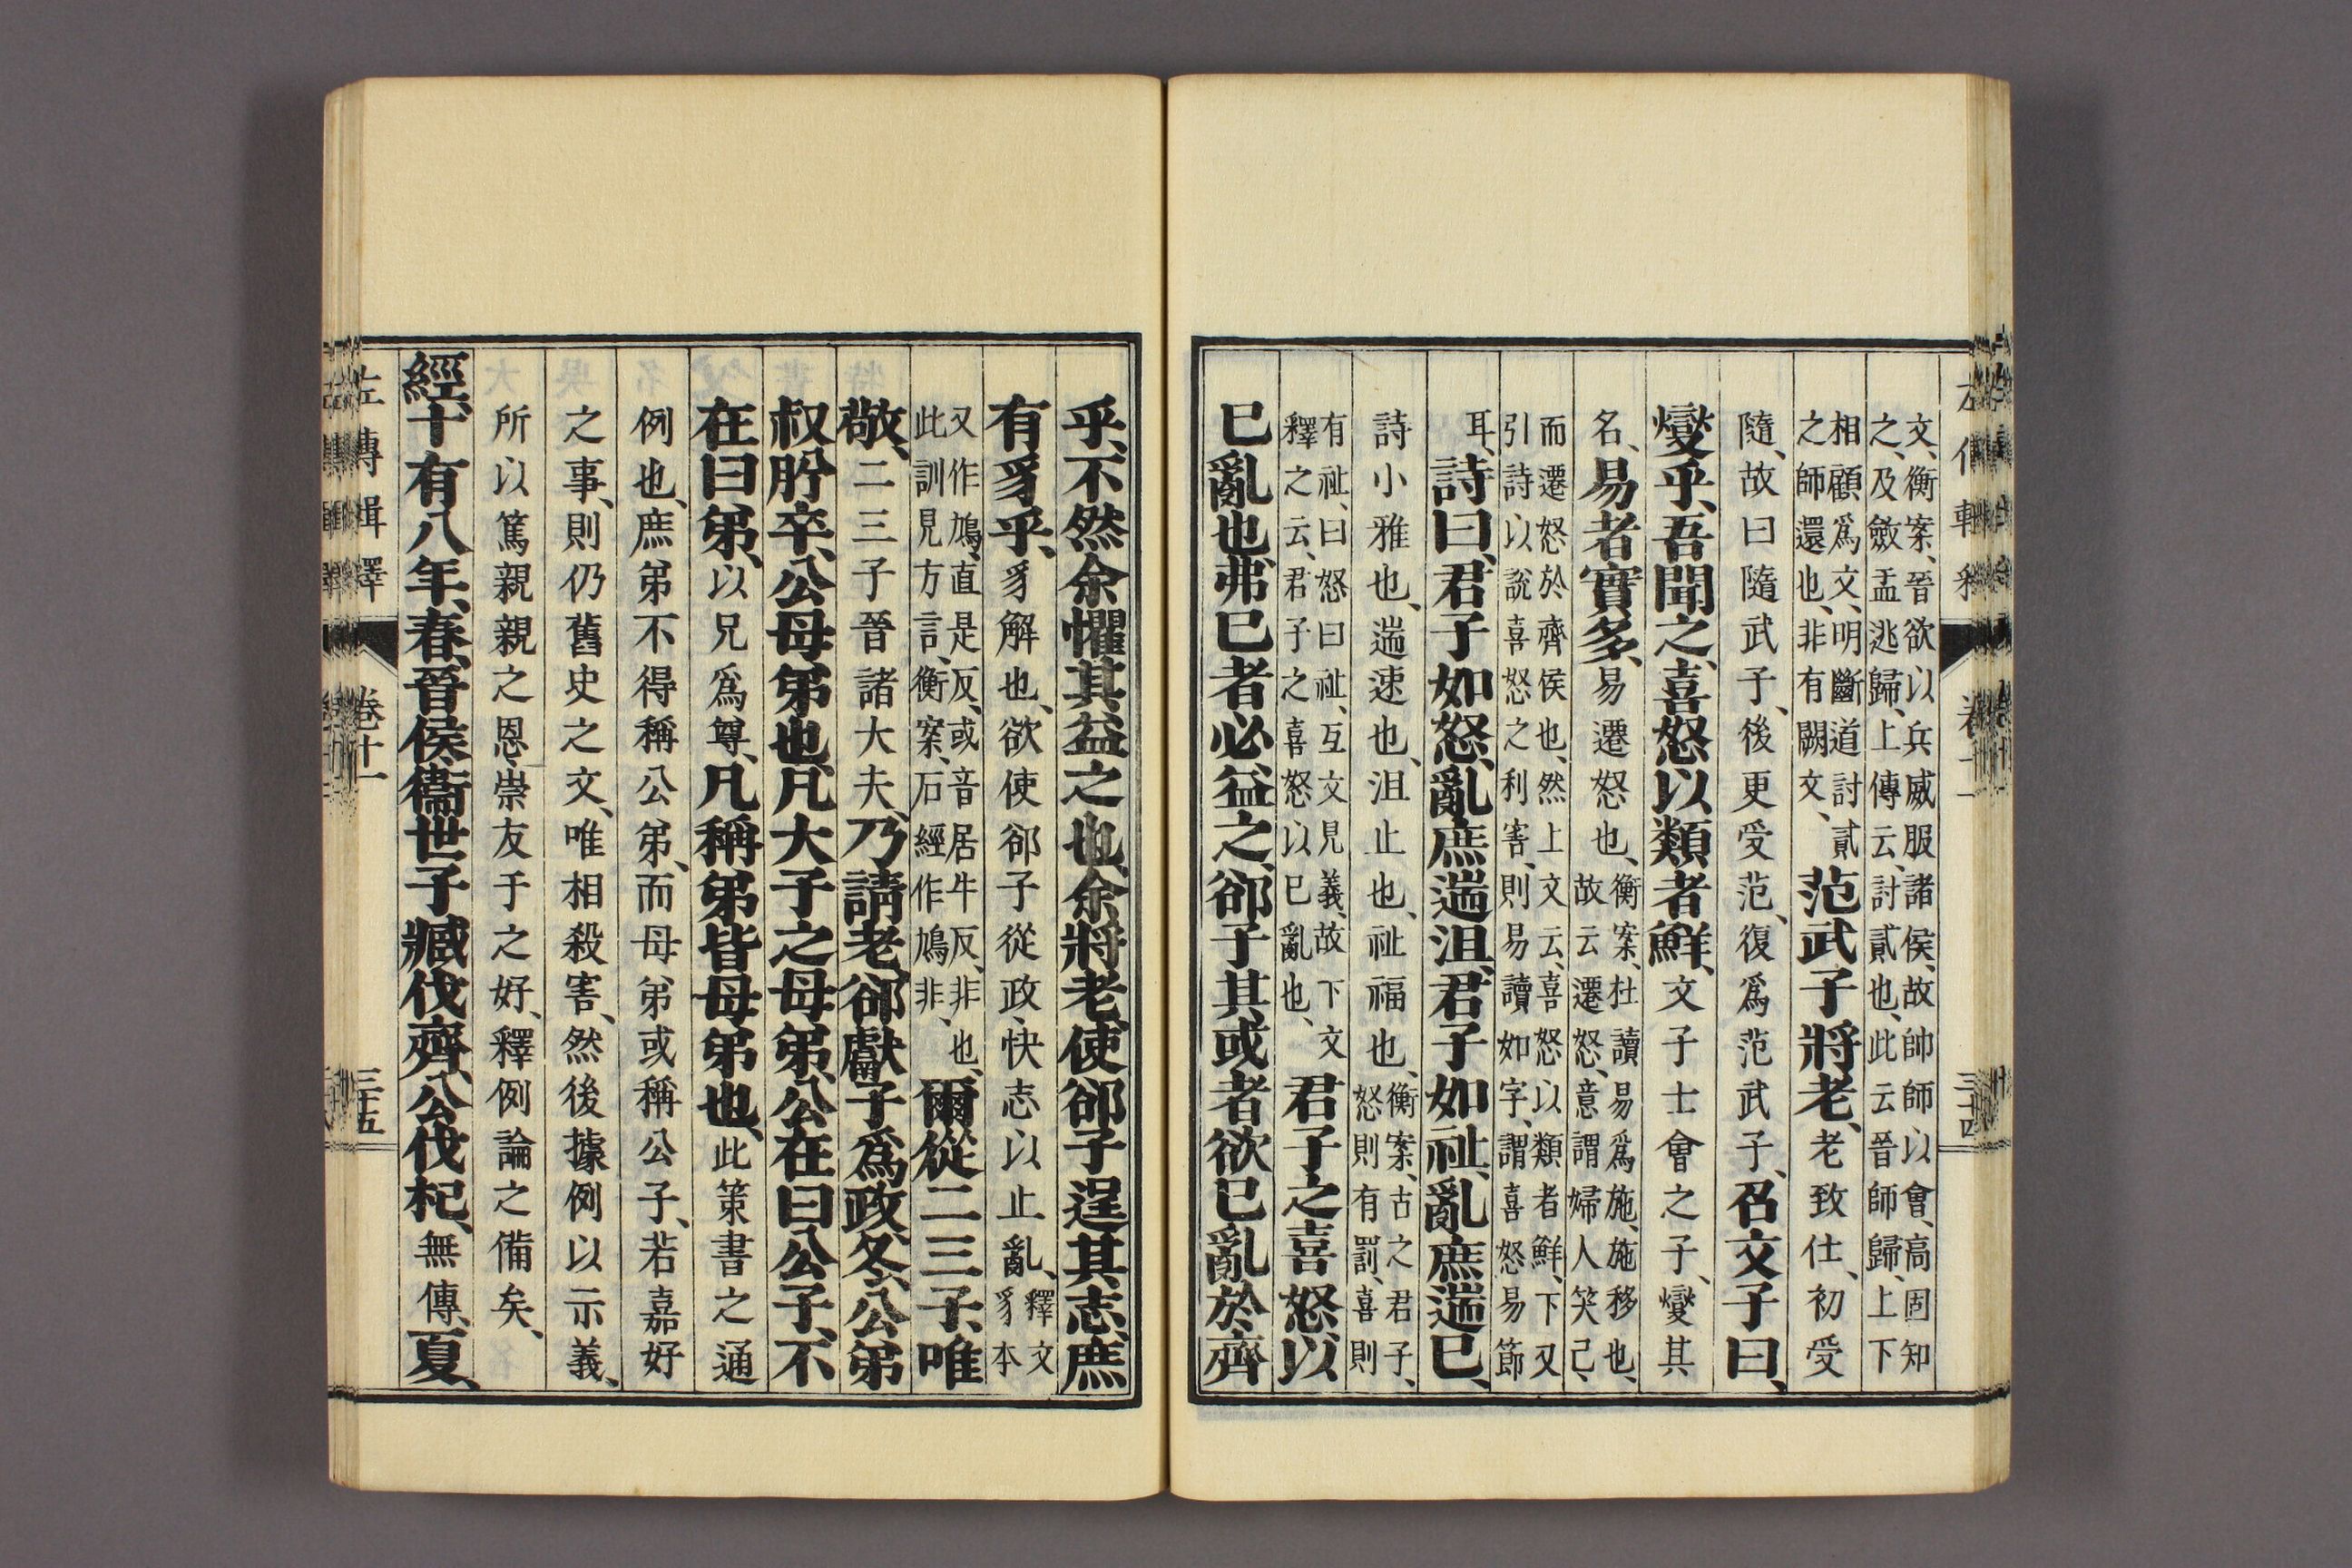 文、衡案、晉欲以兵威服諸侯、故帥師、以會、高固知
之、及斂盂逃歸、上傳云、討貳也、此云晉師歸、上下
相顧爲文、明斷道討貳
之師還也、非有闕文、
范武子將老、老致仕、初受
隨、故曰隨武子、後更受范、復爲范武子、召文子曰、
燮乎、吾聞之、喜怒以類者鮮、文子士會之子、燮其
名、易者實多、易遷怒也、衡案、杜讀易爲施、施移也、
故云遷怒、意謂婦人笑己、
而遷怒於齊侯也、然上文云、喜怒以類者鮮、下又
引詩以說喜怒之利害、則易讀如字、謂喜怒易節
耳、詩曰、君子如怒、亂庶遄沮、君子如祉、亂庶遄已、
詩小雅也、遄速也、沮止也、祉福也、衡案、古之君子、
怒則有罰、喜則
有祉、曰怒曰祉、互文見義、故下文
釋之云、君子之喜怒以已亂也、
君子之喜怒以
已亂也、弗已者必益之、郤子其或者欲已亂於齊
左傳輯釋 卷十一 三十四
乎、不然、余懼其益之也、余將老、使郤子逞其志、庶
有豸乎、豸解也、欲使郤子從政、快志以止亂、釋文
豸本
又作鳩、直是反、或音居牛反、非也、
此訓見方言、衡案、石經作鳩非、
爾從二三子、唯
敬、二三子晉諸大夫、乃請老、郤獻子爲政、冬、公弟
叔肸卒、公母弟也、凡大子之母弟、公在曰公子、不
在曰弟、以兄爲尊、凡稱弟皆母弟也、此策書之通
例也、庶弟不得稱公弟、而母弟或稱公子、若嘉好
之事、則仍舊史之文、唯相殺害、然後據例以示義、
所以篤親親之恩、崇友于之好、釋例論之備矣、
經、十有八年、春、晉侯衞世子臧伐齊、公伐杞、無傳、夏、
左傳輯釋 卷十一 三十五